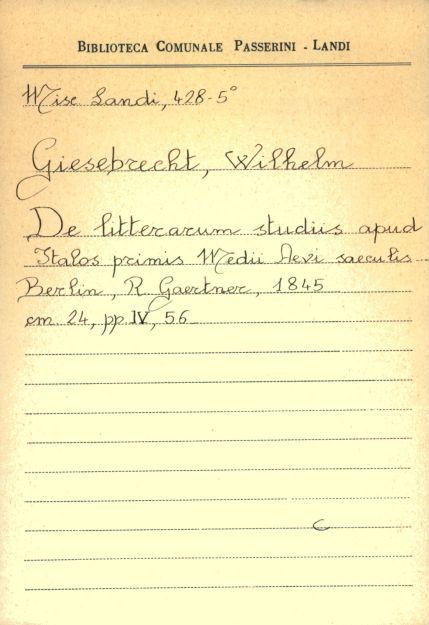 BIBLIOTECA COMUNALE PASSERINI - LANDI
Misc Landi, 428-5°
Giesebrecht, Wilhelm
De litterarum studiis apud
Italos primis Medii Aevi saeculis
Berlin, R Gaertner, 1845
cm 24, pp IV, 56
C